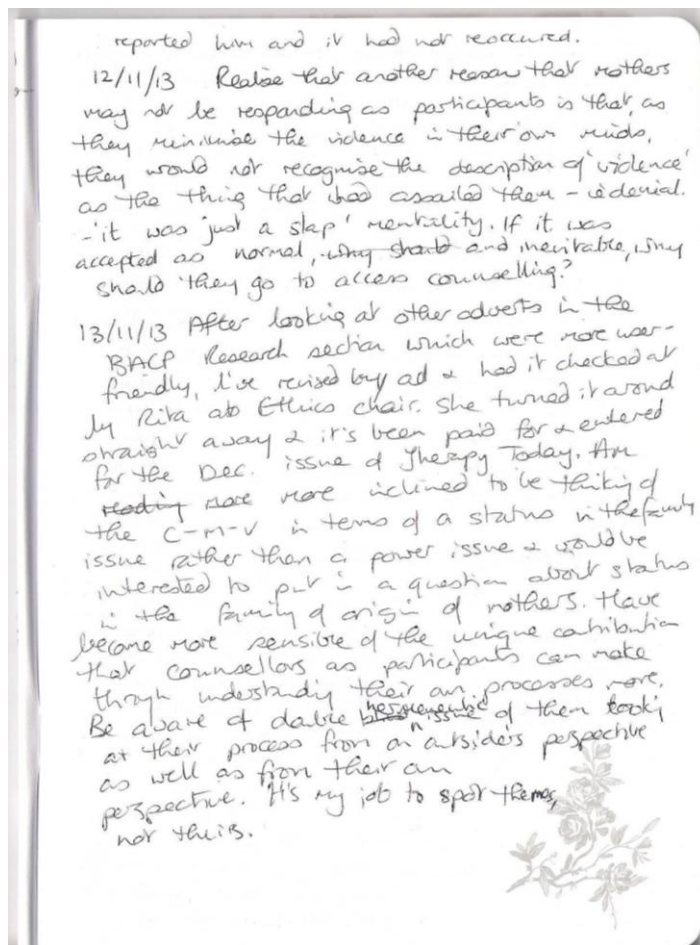 reported him and it had not reoccured.
12/11/13 Realise that another reason that mothers
may not be responding as participants is that, as
they minimise the violence in their own minds,
they would not recognise the description of 'violence'
as the thing that had assailed them - ie denial.
- 'it was just a slap' mentality. If it was
accepted as normal, why should and inevitable, why
should they go to access counselling?
13/11/13 After looking at other adverts in the
BACP Research section which were more user-
friendly, I've revised my ad & had it checked at
by Rita ab Ethics chair. She turned it around
straight away & it's been paid for & entered
for the Dec. issue of Therapy Today. Am
reading more more inclined to be thinking of
the C-M-V in terms of a status in the family
issue rather than a power issue & would be
interested to put in a question about status
in the family of origin of mothers. Have
become more sensible of the unique contribution
that counsellors as participants can make
through understanding their own processes more.
Be aware of double hermeneutic issue of them looking
at their process from an outsider's perspective
as well as from their own
perspective. It's my job to spot themes,
not theirs.